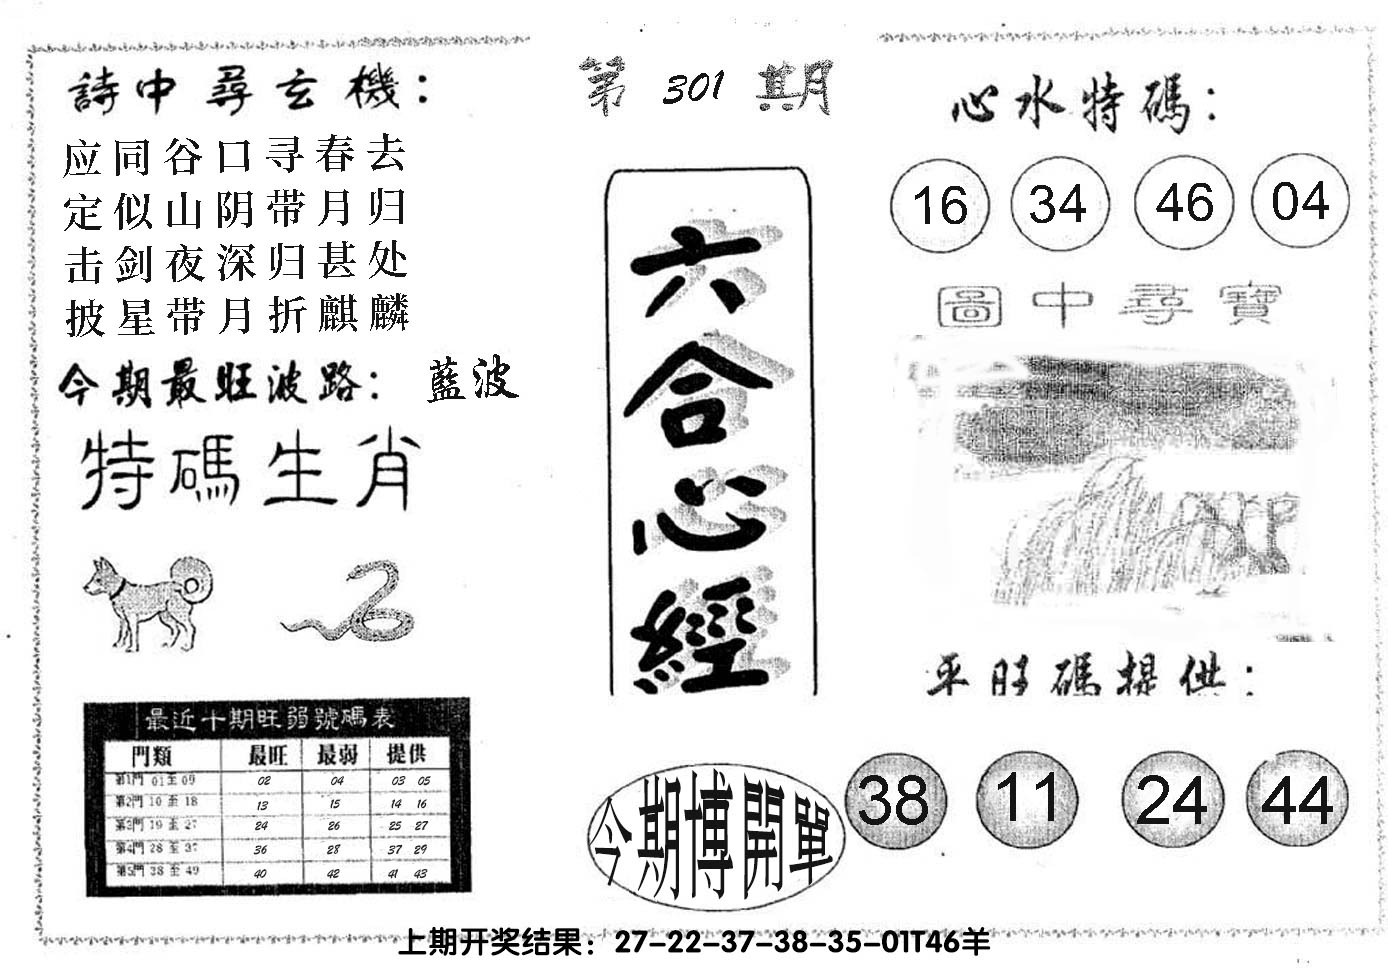 詩中尋玄機：
应同谷口寻春去
定似山阴带月归
击剑夜深归甚处
披星带月折麒麟
今期最旺波路：藍波
特碼生肖
最近十期旺弱號碼表
門類 最旺 最弱 提供
第1門 01至09 02 04 03 05
第2門 10至18 13 15 14 16
第3門 19至27 24 26 25 27
第4門 28至37 36 28 37 29
第5門 38至49 40 42 41 43
第301期
六合心經
今期博開單
心水特碼：
16 34 46 04
圖中尋寶
平旺碼提供：
38 11 24 44
上期开奖结果：27-22-37-38-35-01T46羊